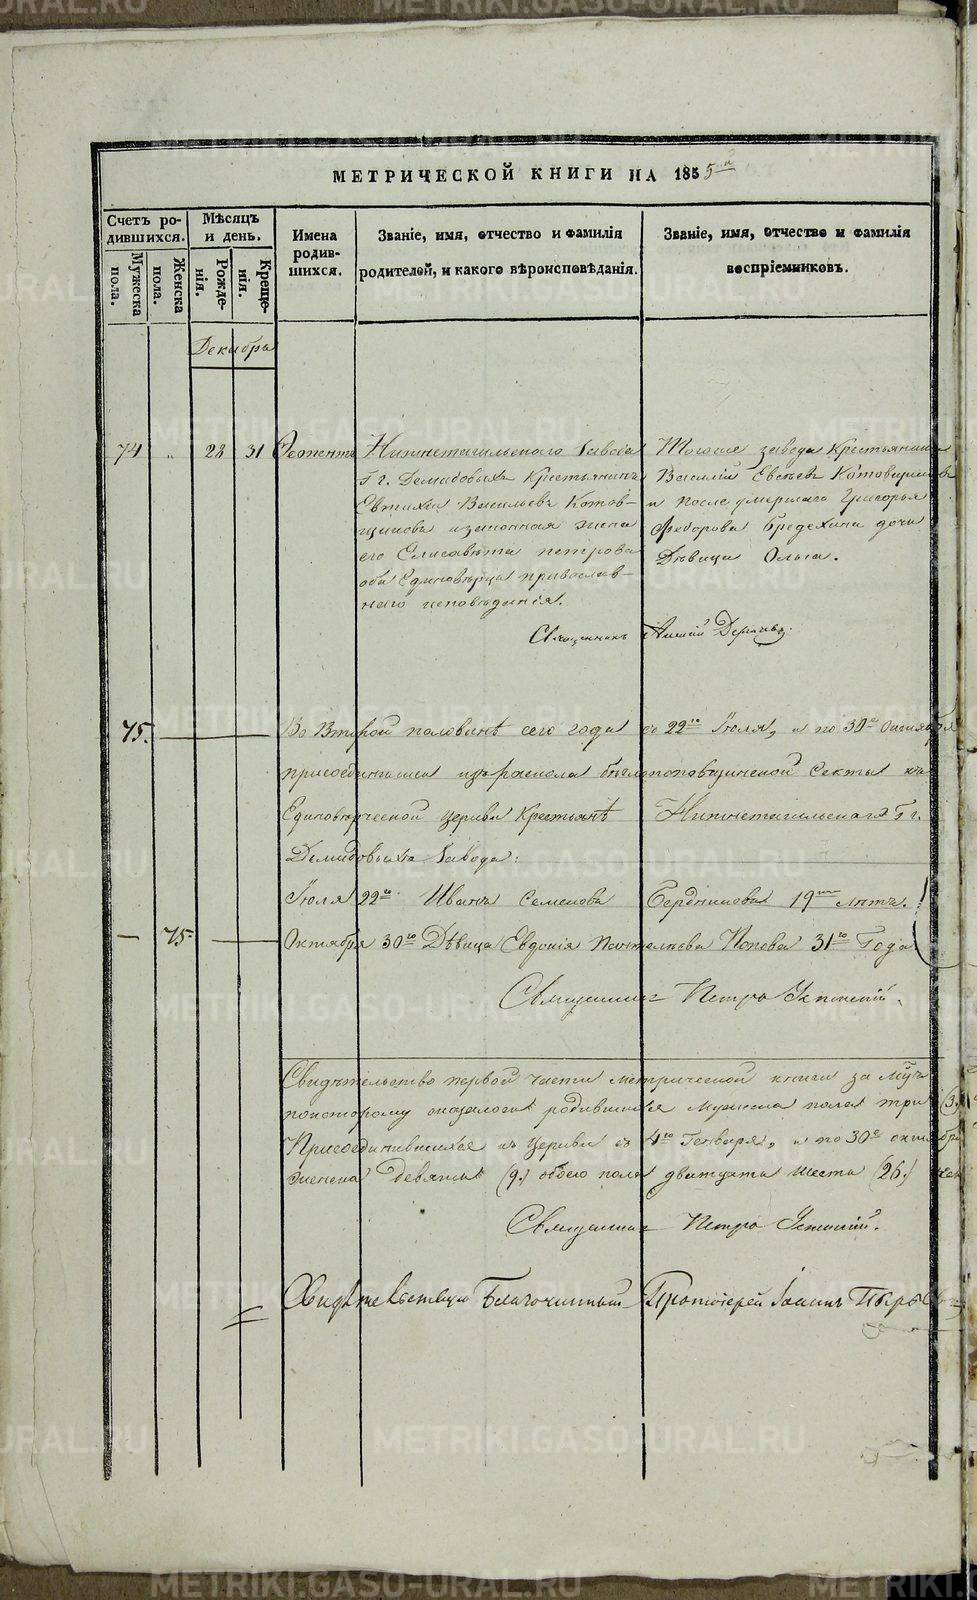 МЕТРИЧЕСКОЙ КНИГИ НА 1855
Счетъ ро-
дившихся.
Мужеска
пола.
Женска
пола.
Мѣсяцъ
и день.
Рожде-
нія.
Креще-
нія.
Имена
родив-
шихся.
Званіе, имя, отчество и фамилія
родителей, и какого вѣроисповѣданія.
Званіе, имя, отчество и фамилія
воспріемниковъ.
Декабрь
74 „ 28 31
Нижнетагильскаго завода
Гг. Демидовыхъ Крестьянинъ
Евтихій Васильевъ Котов-
щиковъ изаконная жена
его Елисавета петрова
оба Единовѣрцы православ-
наго исповѣданія.
Тогоже завода Крестьянинъ
Василій Евсѣевъ Котовщиковъ
и после умершаго Григорья
Федорова Бредихина дочь
Дѣвица Ольга.
Священникъ
75. Во Второй половинѣ сего года съ 22го Іюля, и по 30е Октября
присоединились изъ раскола бѣглопоповщинской Секты къ
Единовѣрческой церкви Крестьянѣ Нижнетагильскаго Гг.
Демидовыхъ завода:
Іюля 22го Иванъ Семеновъ Бердниковъ 19ти лѣтъ.
— 75. Октября 30го Дѣвица Евдокія Пантелѣева Попова 31го Года
Священникъ Петръ
Свидѣтельство первой части метрической книги за
покоторому оказалось родившихся Мужеска пола три (3.)
Присоединившихся къ Церкви съ 4го Генваря, и по 30е октября
женска Девять (9.) обоего пола двадцать шесть (26.)
Священникъ Петръ
Свидѣтельствовалъ Благочинный Протоіерей Іоаннъ
METRIKI.GASO-URAL.RU